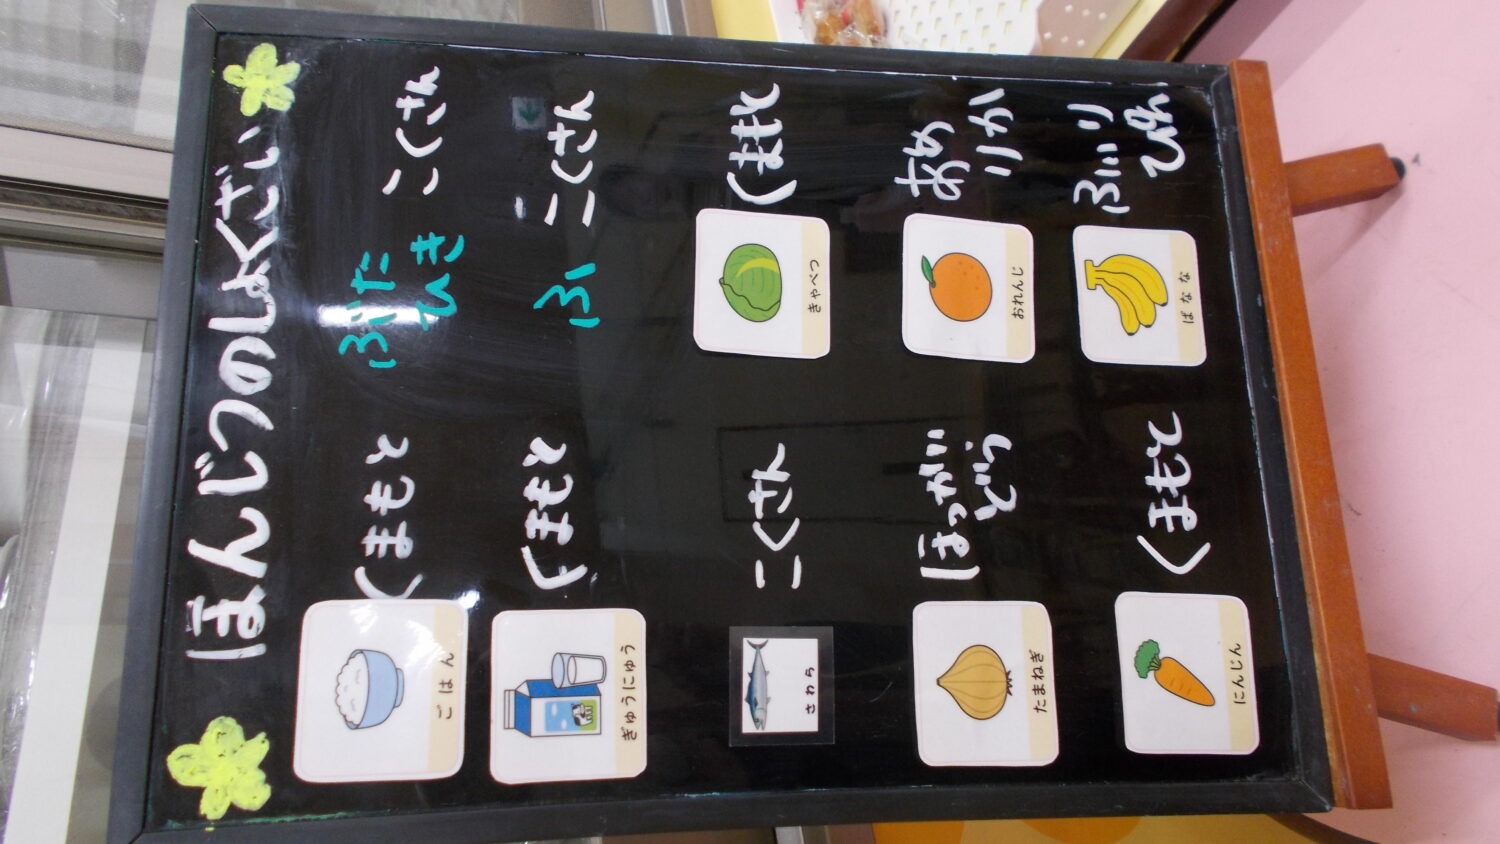 ほんじつのしょくざい
ごはん
くまもと
ぶた
ひき
こくさん
ぎゅうにゅう
くまもと
ふ
こくさん
さわら
こくさん
きゃべつ
くまもと
たまねぎ
ほっかい
どう
おれんじ
あめ
りか
にんじん
くまもと
ばなな
ふぃり
ぴん